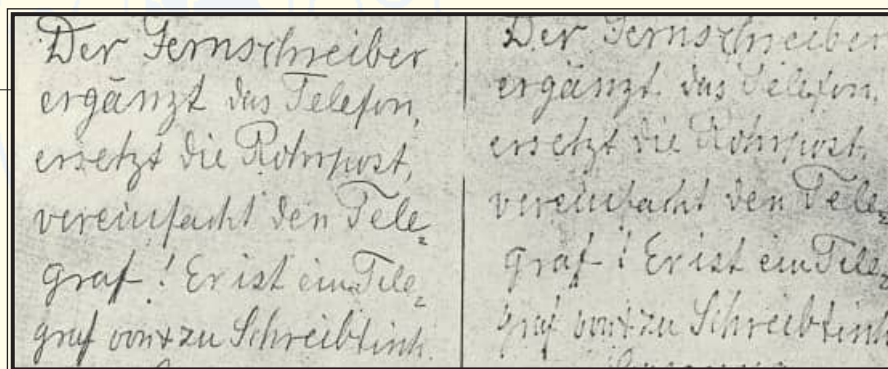 Der Fernschreiber
ergänzt das Telefon,
ersetzt die Rohrpost,
vereinfacht den Tele=
graf! Er ist ein Tele=
graf von + zu Schreibtisch.
Der Fernschreiber
ergänzt das Telefon,
ersetzt die Rohrpost,
vereinfacht den Tele=
graf! Er ist ein Tele=
graf von + zu Schreibtisch